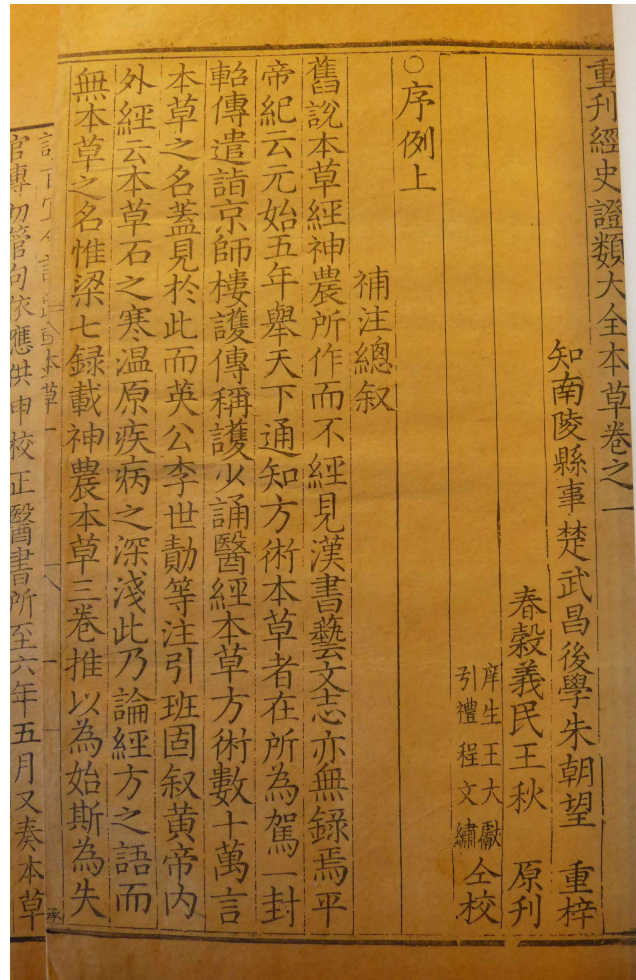 重刊經史證類大全本草卷之一
知南陵縣事楚武昌後學朱朝望 重梓
春穀義民王秋 原刊
庠生王大獻
引禮程文繡
仝校
○序例上
補注總叙
舊說本草經神農所作而不經見漢書藝文志亦無錄焉平
帝紀云元始五年舉天下通知方術本草者在所為駕一封
軺傳遣詣京師樓護傳稱護少誦醫經本草方術數十萬言
本草之名蓋見於此而英公李世勣等注引班固叙黃帝內
外經云本草石之寒温原疾病之深淺此乃論經方之語而
無本草之名惟梁七録載神農本草三卷推以為始斯為失
承
官專切管句依應供申校正醫書所至六年五月又奏本草